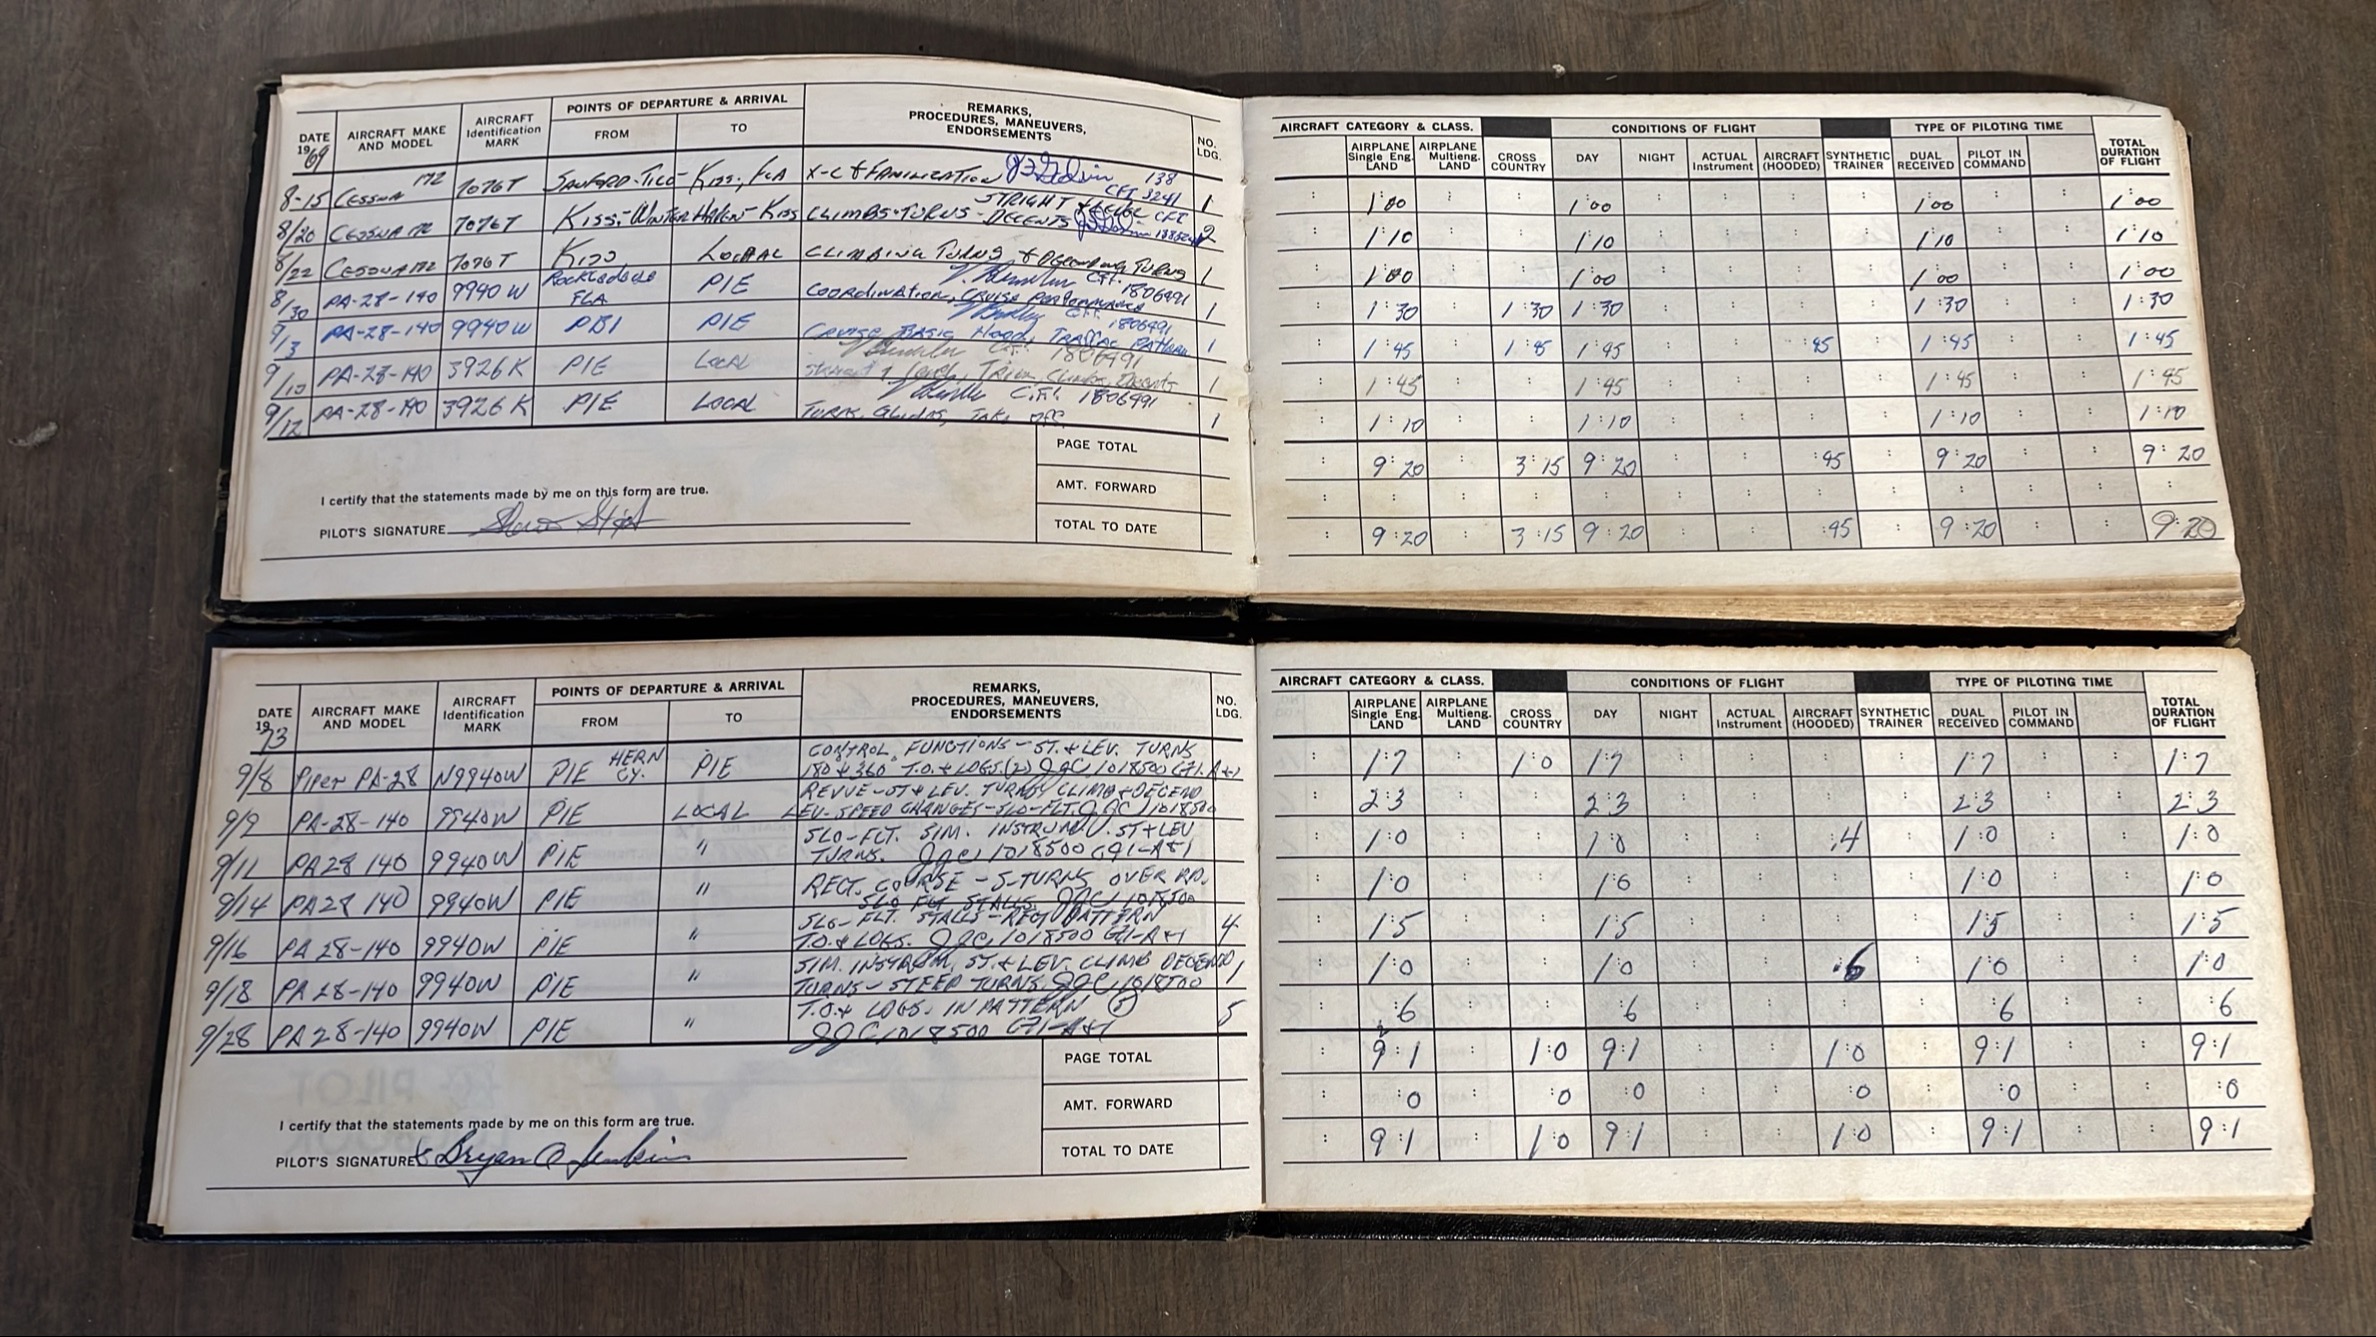 DATE 1969 AIRCRAFT MAKE AND MODEL AIRCRAFT Identification MARK POINTS OF DEPARTURE & ARRIVAL FROM TO REMARKS, PROCEDURES, MANEUVERS, ENDORSEMENTS NO. LDG.
AIRCRAFT CATEGORY & CLASS. CONDITIONS OF FLIGHT TYPE OF PILOTING TIME
AIRPLANE Single Eng. LAND AIRPLANE Multieng. LAND CROSS COUNTRY DAY NIGHT ACTUAL Instrument AIRCRAFT (HOODED) SYNTHETIC TRAINER DUAL RECEIVED PILOT IN COMMAND TOTAL DURATION OF FLIGHT
8-15 CESSNA 172 7076T SANFORD-TICO- KISS, FLA X-C & FAMILIZATION 138 CFI 3241 1 1:00 1:00 1:00 1:00
8/20 CESSNA 172 7076T KISS.-WINTER HAVEN-KISS CLIMBS-TURNS- STRIGHT & LEVEL DECENTS CFI 2 1:10 1:10 1:10 1:10
8/22 CESSNA 172 7076T KISS LOCAL CLIMBING TURNS & DECENDING TURNS 1 1:00 1:00 1:00 1:00
8/30 PA-28-140 9940W FLA PIE C.F.I. 1806491 COORDINATION, CRUISE PERFORMANCE 1 1:30 1:30 1:30 1:30 1:30
9/13 PA-28-140 9940W PBI PIE C.F.I. 1806491 CRUISE BASIC Hood, TRAFFIC PATTERN 1 1:45 1:45 1:45 :45 1:45 1:45
9/10 PA-28-140 3926K PIE LOCAL C.F.I. 1806491 straight & level, Trim, Climbs, Decents 1 1:45 1:45 1:45 1:45
9/12 PA-28-140 3926K PIE LOCAL C.F.I. 1806491 TURNS, Glides, Take off 1 1:10 1:10 1:10 1:10
PAGE TOTAL 9:20 3:15 9:20 :45 9:20 9:20
I certify that the statements made by me on this form are true. AMT. FORWARD
PILOT'S SIGNATURE TOTAL TO DATE 9:20 3:15 9:20 :45 9:20 9:20
DATE 1973 AIRCRAFT MAKE AND MODEL AIRCRAFT Identification MARK POINTS OF DEPARTURE & ARRIVAL FROM TO REMARKS, PROCEDURES, MANEUVERS, ENDORSEMENTS NO. LDG.
AIRCRAFT CATEGORY & CLASS. CONDITIONS OF FLIGHT TYPE OF PILOTING TIME
AIRPLANE Single Eng. LAND AIRPLANE Multieng. LAND CROSS COUNTRY DAY NIGHT ACTUAL Instrument AIRCRAFT (HOODED) SYNTHETIC TRAINER DUAL RECEIVED PILOT IN COMMAND TOTAL DURATION OF FLIGHT
CONTROL FUNCTIONS-ST.&LEV. TURNS
9/8 Piper PA-28 N9940W PIE HERN CY. PIE 180 & 360° T.O.& LDGS.(2) JJC 1018500 G71-A&I 1:7 1:0 1:7 1:7 1:7
REVUE-ST&LEV. TURNS CLIMB&DECEND
9/9 PA-28-140 9940W PIE LOCAL LEV. SPEED CHANGES-SLO-FLT. JJC 1018500 2:3 2:3 2:3 2:3
SLO-FLT. SIM. INSTRUM. ST&LEV
9/11 PA28 140 9940W PIE " TURNS. JJC 1018500 G71-A&I 1:0 1:0 :4 1:0 1:0
RECT. COURSE-S-TURNS OVER RD.
9/14 PA28 140 9940W PIE " SLO FLT STALLS JJC 1018500 1:0 1:0 1:0 1:0
SLO-FLT. STALLS-RECT PATTERN
9/16 PA 28-140 9940W PIE " T.O.& LDGS. JJC 1018500 G71-A&I 4 1:5 1:5 1:5 1:5
SIM. INSTRUM. ST.&LEV. CLIMB DECEND
9/18 PA 28-140 9940W PIE " TURNS-STEEP TURNS JJC 1018500 1 1:0 1:0 :6 1:0 1:0
T.O.& LDGS. IN PATTERN (5)
9/28 PA 28-140 9940W PIE " JJC 1018500 G71-A&I 5 :6 :6 :6 :6
PAGE TOTAL 9:1 1:0 9:1 1:0 9:1 9:1
AMT. FORWARD :0 :0 :0 :0 :0 :0
I certify that the statements made by me on this form are true.
PILOT'S SIGNATURE Bryan A Jenkins TOTAL TO DATE 9:1 1:0 9:1 1:0 9:1 9:1